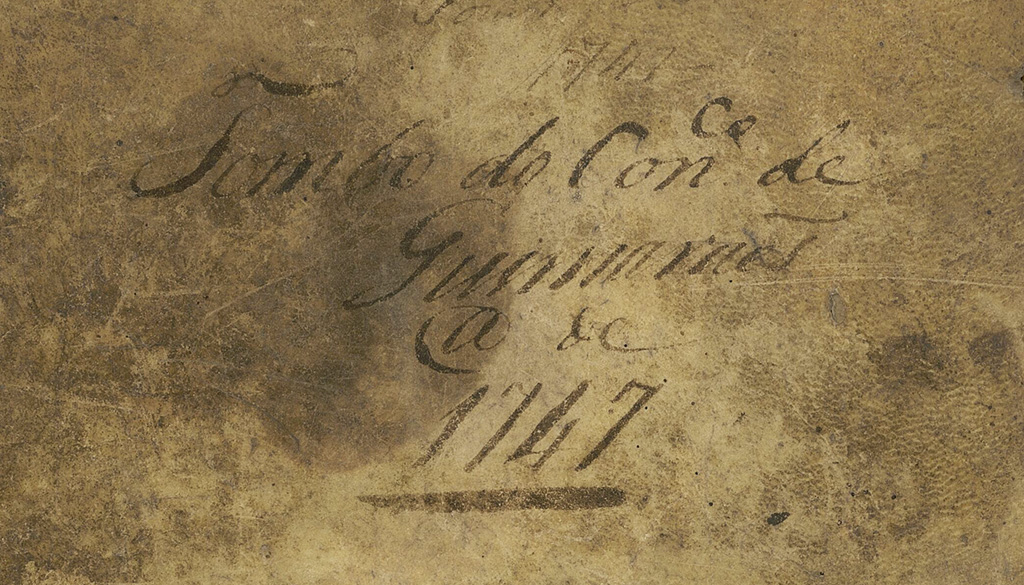 1741
Tombo do Con.co de
Guimaraẽs
@ de
1747